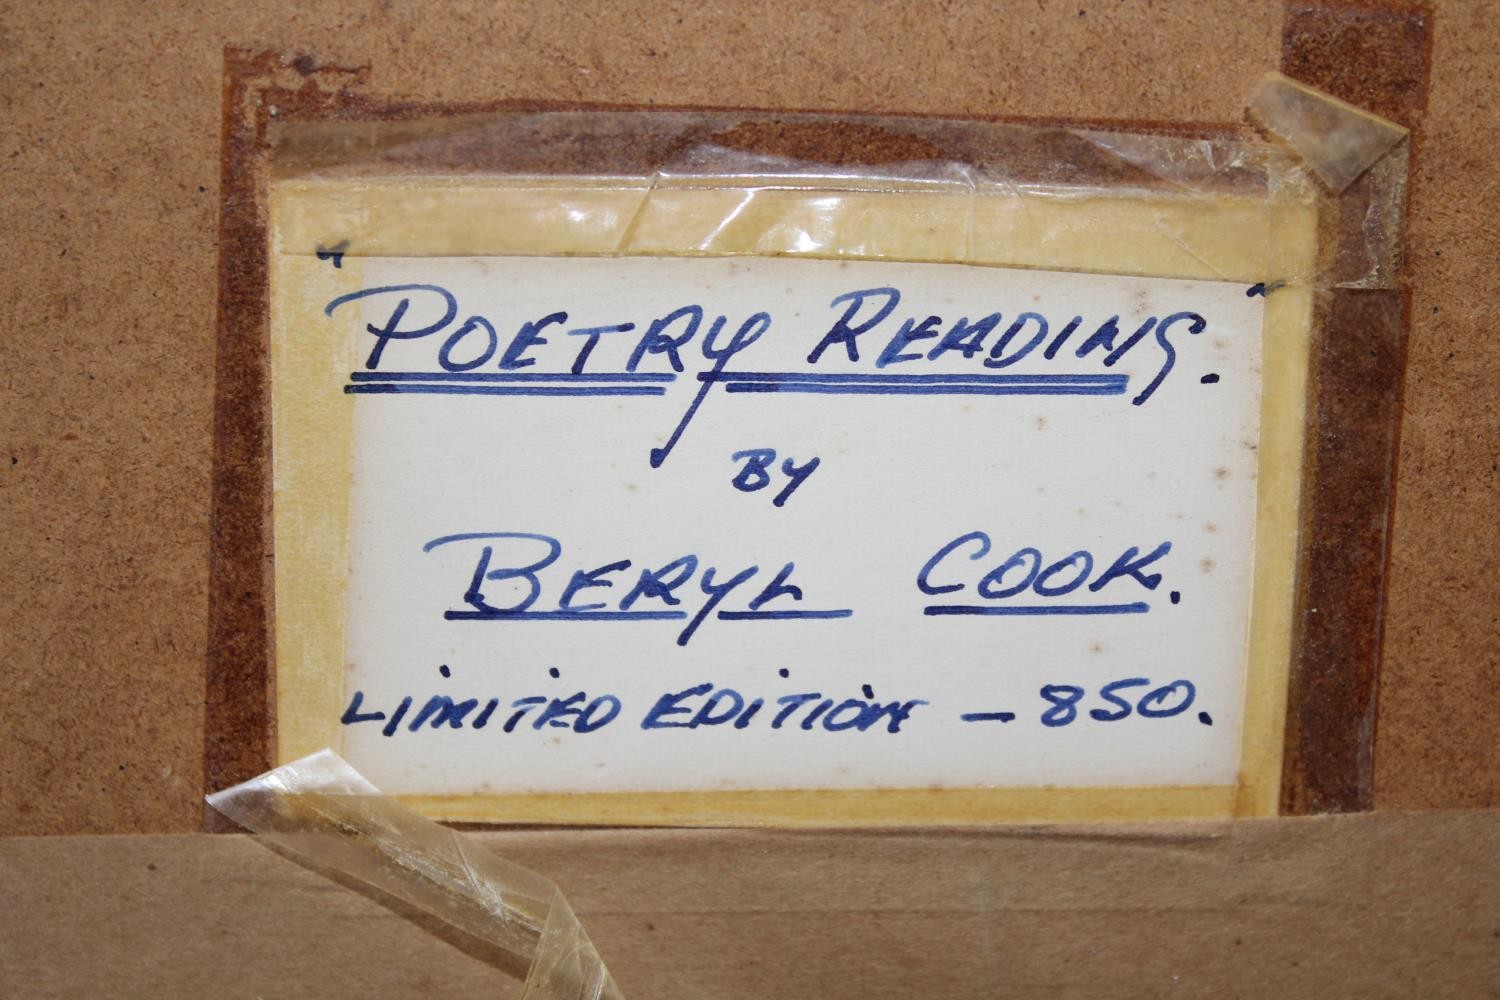 "POETRY READING."
BY
BERYL COOK.
LIMITED EDITION - 850.